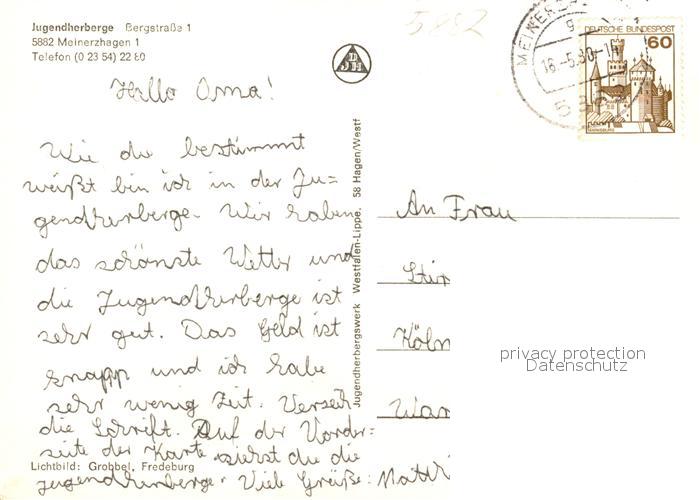 Jugendherberge Bergstraße 1
5882 Meinerzhagen 1
Telefon (0 23 54) 22 80
5882
DJH
16.-5.80-1
DEUTSCHE BUNDESPOST
60
Hallo Oma!
Wie du bestimmt
weißt bin ich in der Ju=
gendherberge. Wir haben
das schönste Wetter und
die Jugendherberge ist
sehr gut. Das Geld ist
knapp und ich habe
sehr wenig Zeit. Verzeih
die Schrift. Auf der Vorder=
seite der Karte siehst du die
Jugendherberge. Viele Grüße:
Lichtbild: Grobbel, Fredeburg
Jugendherbergswerk Westfalen-Lippe, 58 Hagen/Westf
An Frau
Köln
privacy protection
Datenschutz